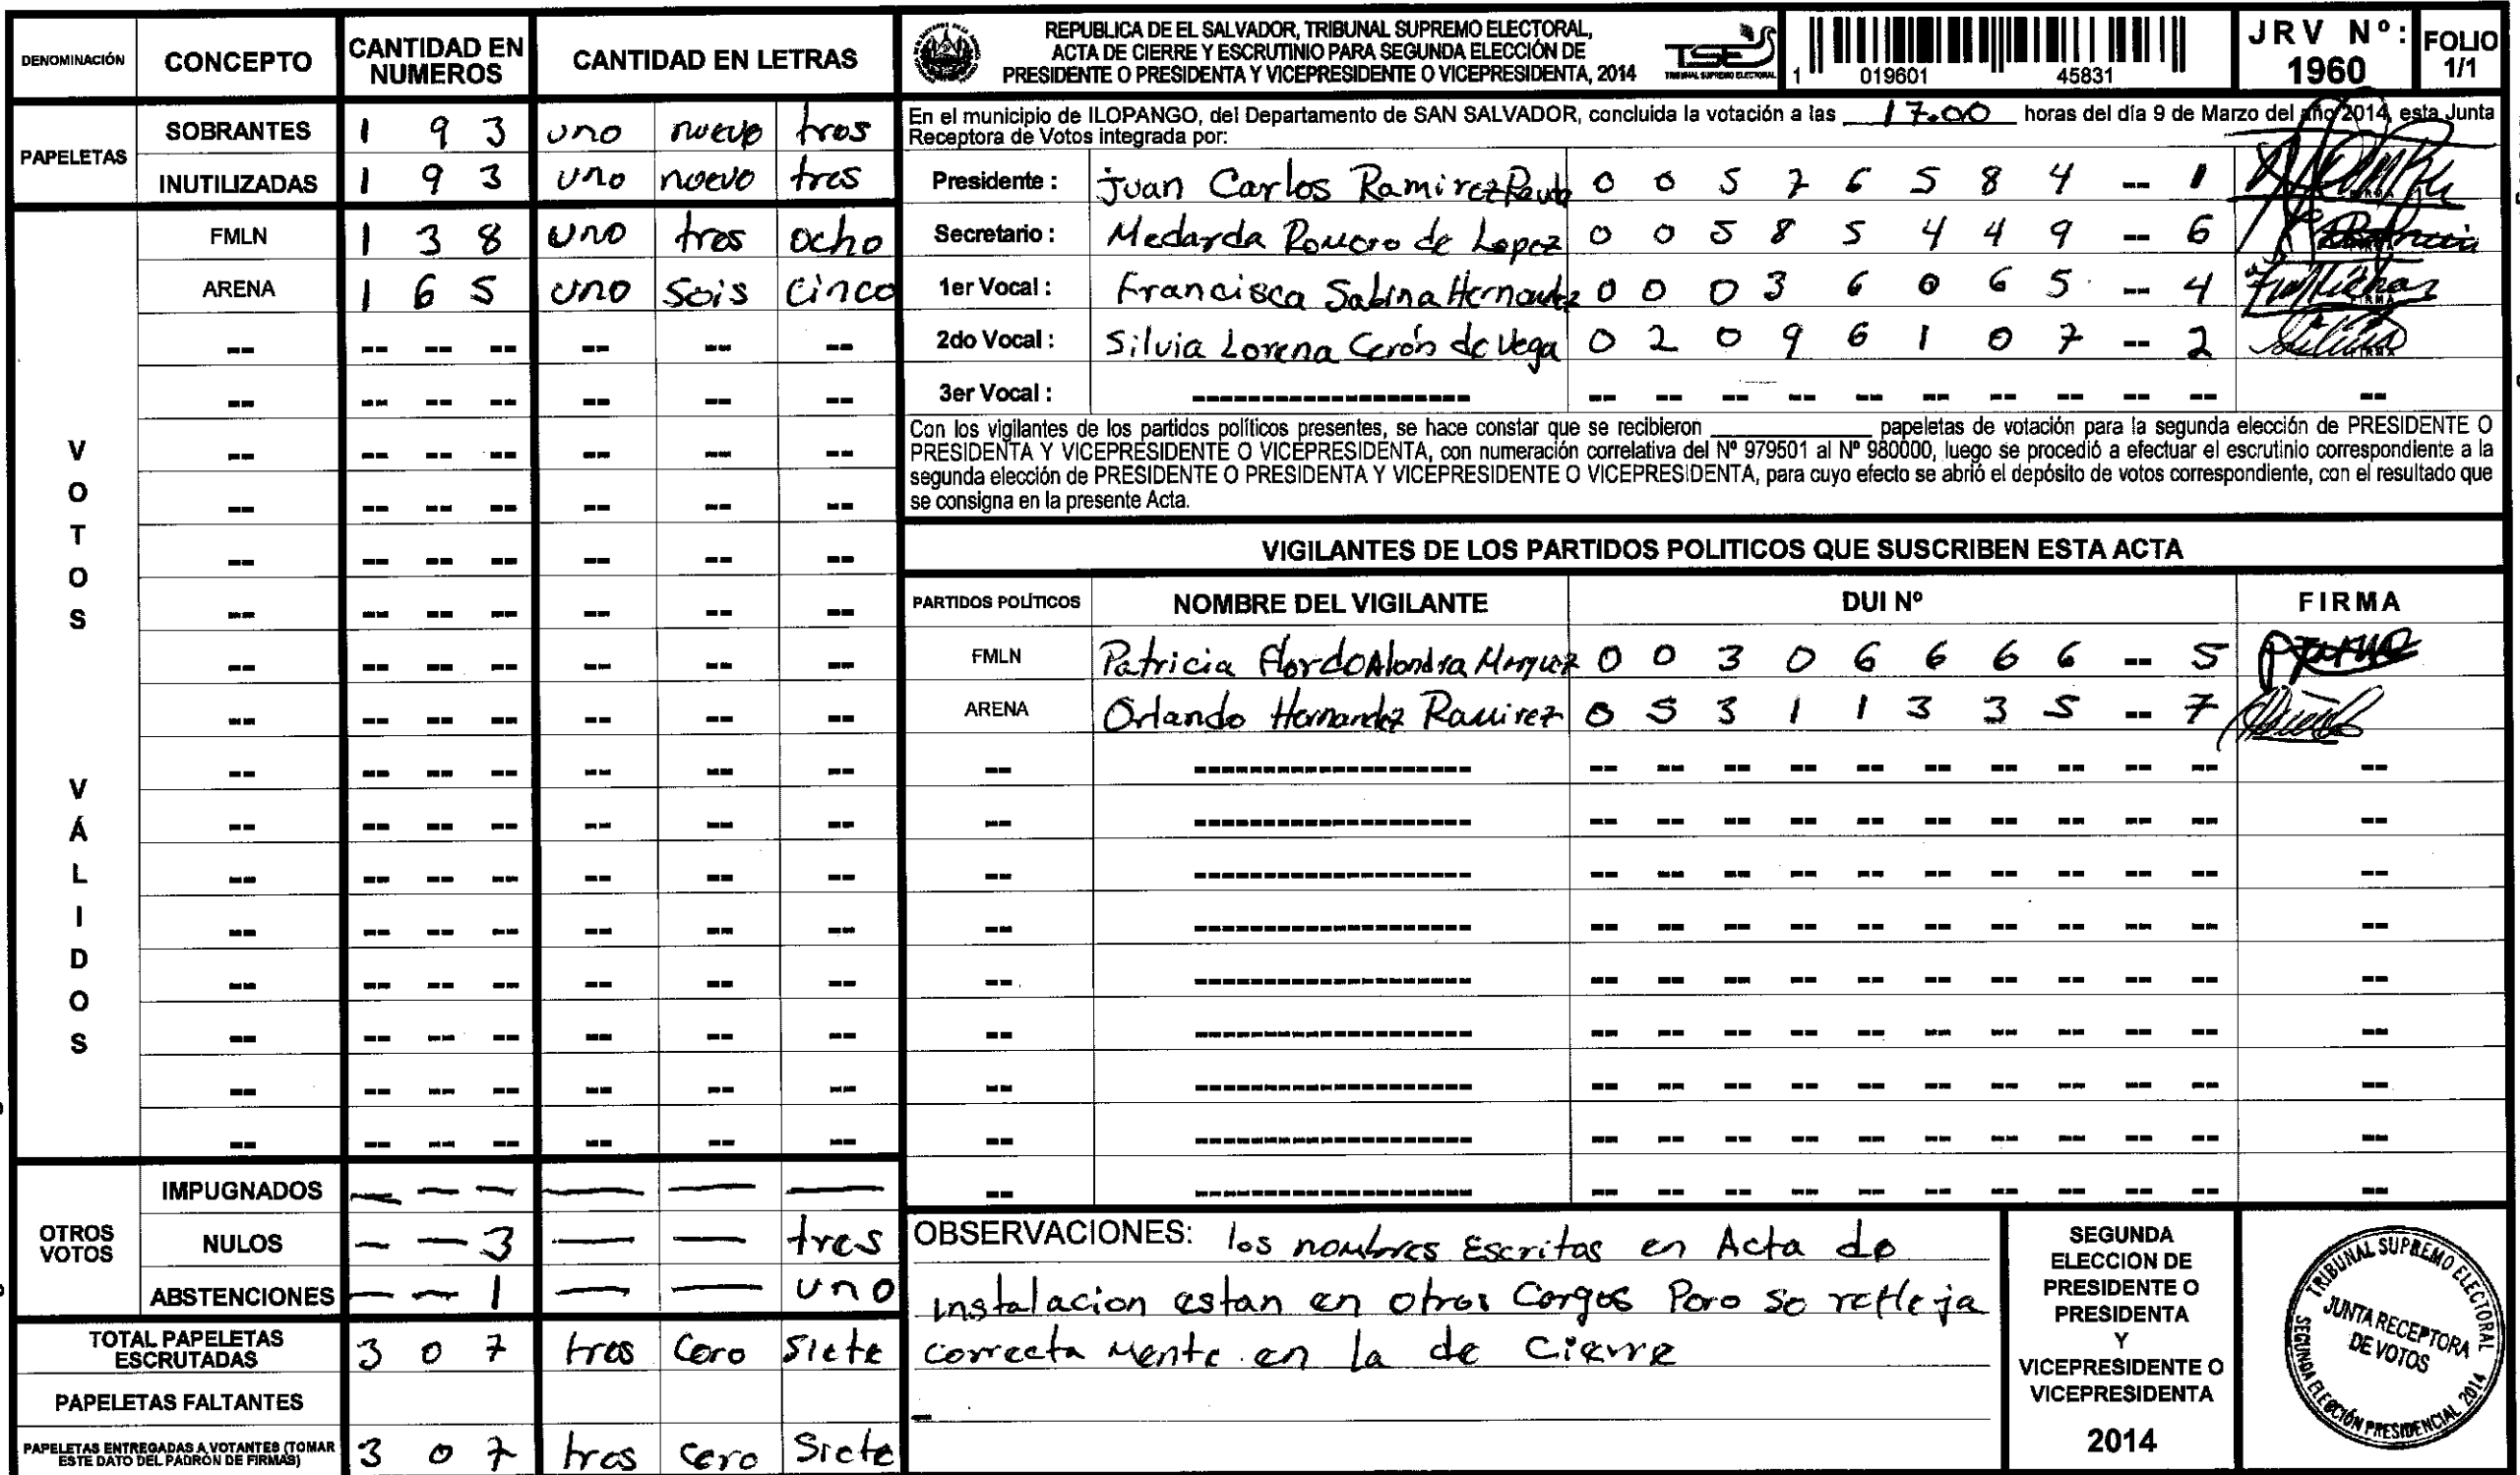 DENOMINACIÓN CONCEPTO CANTIDAD EN NUMEROS CANTIDAD EN LETRAS
PAPELETAS
SOBRANTES 1 9 3 uno nuevo tres
INUTILIZADAS 1 9 3 uno nuevo tres
VOTOS VÁLIDOS
FMLN 1 3 8 uno tres ocho
ARENA 1 6 5 uno seis cinco
OTROS VOTOS
IMPUGNADOS — — — — — —
NULOS — — 3 — — tres
ABSTENCIONES — — 1 — — uno
TOTAL PAPELETAS ESCRUTADAS 3 0 7 tres cero siete
PAPELETAS FALTANTES
PAPELETAS ENTREGADAS A VOTANTES (TOMAR ESTE DATO DEL PADRÓN DE FIRMAS) 3 0 7 tres cero siete
REPUBLICA DE EL SALVADOR, TRIBUNAL SUPREMO ELECTORAL,
ACTA DE CIERRE Y ESCRUTINIO PARA SEGUNDA ELECCIÓN DE
PRESIDENTE O PRESIDENTA Y VICEPRESIDENTE O VICEPRESIDENTA, 2014
TSE
TRIBUNAL SUPREMO ELECTORAL
1 019601 45831
JRV Nº: 1960
FOLIO 1/1
En el municipio de ILOPANGO, del Departamento de SAN SALVADOR, concluida la votación a las 17:00 horas del día 9 de Marzo del año 2014, esta Junta
Receptora de Votos integrada por:
Presidente : Juan Carlos Ramirez 0 0 5 7 6 5 8 4 -- 1
Secretario : Medarda Romero de Lopez 0 0 5 8 5 4 4 9 -- 6
1er Vocal : Francisca Sabina Hernandez 0 0 0 3 6 0 6 5 -- 4
2do Vocal : Silvia Lorena Cerón de Vega 0 2 0 9 6 1 0 7 -- 2
3er Vocal :
Con los vigilantes de los partidos políticos presentes, se hace constar que se recibieron ________ papeletas de votación para la segunda elección de PRESIDENTE O
PRESIDENTA Y VICEPRESIDENTE O VICEPRESIDENTA, con numeración correlativa del Nº 979501 al Nº 980000, luego se procedió a efectuar el escrutinio correspondiente a la
segunda elección de PRESIDENTE O PRESIDENTA Y VICEPRESIDENTE O VICEPRESIDENTA, para cuyo efecto se abrió el depósito de votos correspondiente, con el resultado que
se consigna en la presente Acta.
VIGILANTES DE LOS PARTIDOS POLITICOS QUE SUSCRIBEN ESTA ACTA
PARTIDOS POLÍTICOS NOMBRE DEL VIGILANTE DUI Nº FIRMA
FMLN Patricia 0 0 3 0 6 6 6 6 -- 5
ARENA Orlando Hernandez Ramirez 0 5 3 1 1 3 3 5 -- 7
OBSERVACIONES: los nombres Escritas en Acta de
instalacion estan en otros Cargos Pero se refleja
correcta mente en la de Cierre
SEGUNDA
ELECCION DE
PRESIDENTE O
PRESIDENTA
Y
VICEPRESIDENTE O
VICEPRESIDENTA
2014
TRIBUNAL SUPREMO ELECTORAL
JUNTA RECEPTORA
DE VOTOS
SEGUNDA ELECCIÓN PRESIDENCIAL 2014